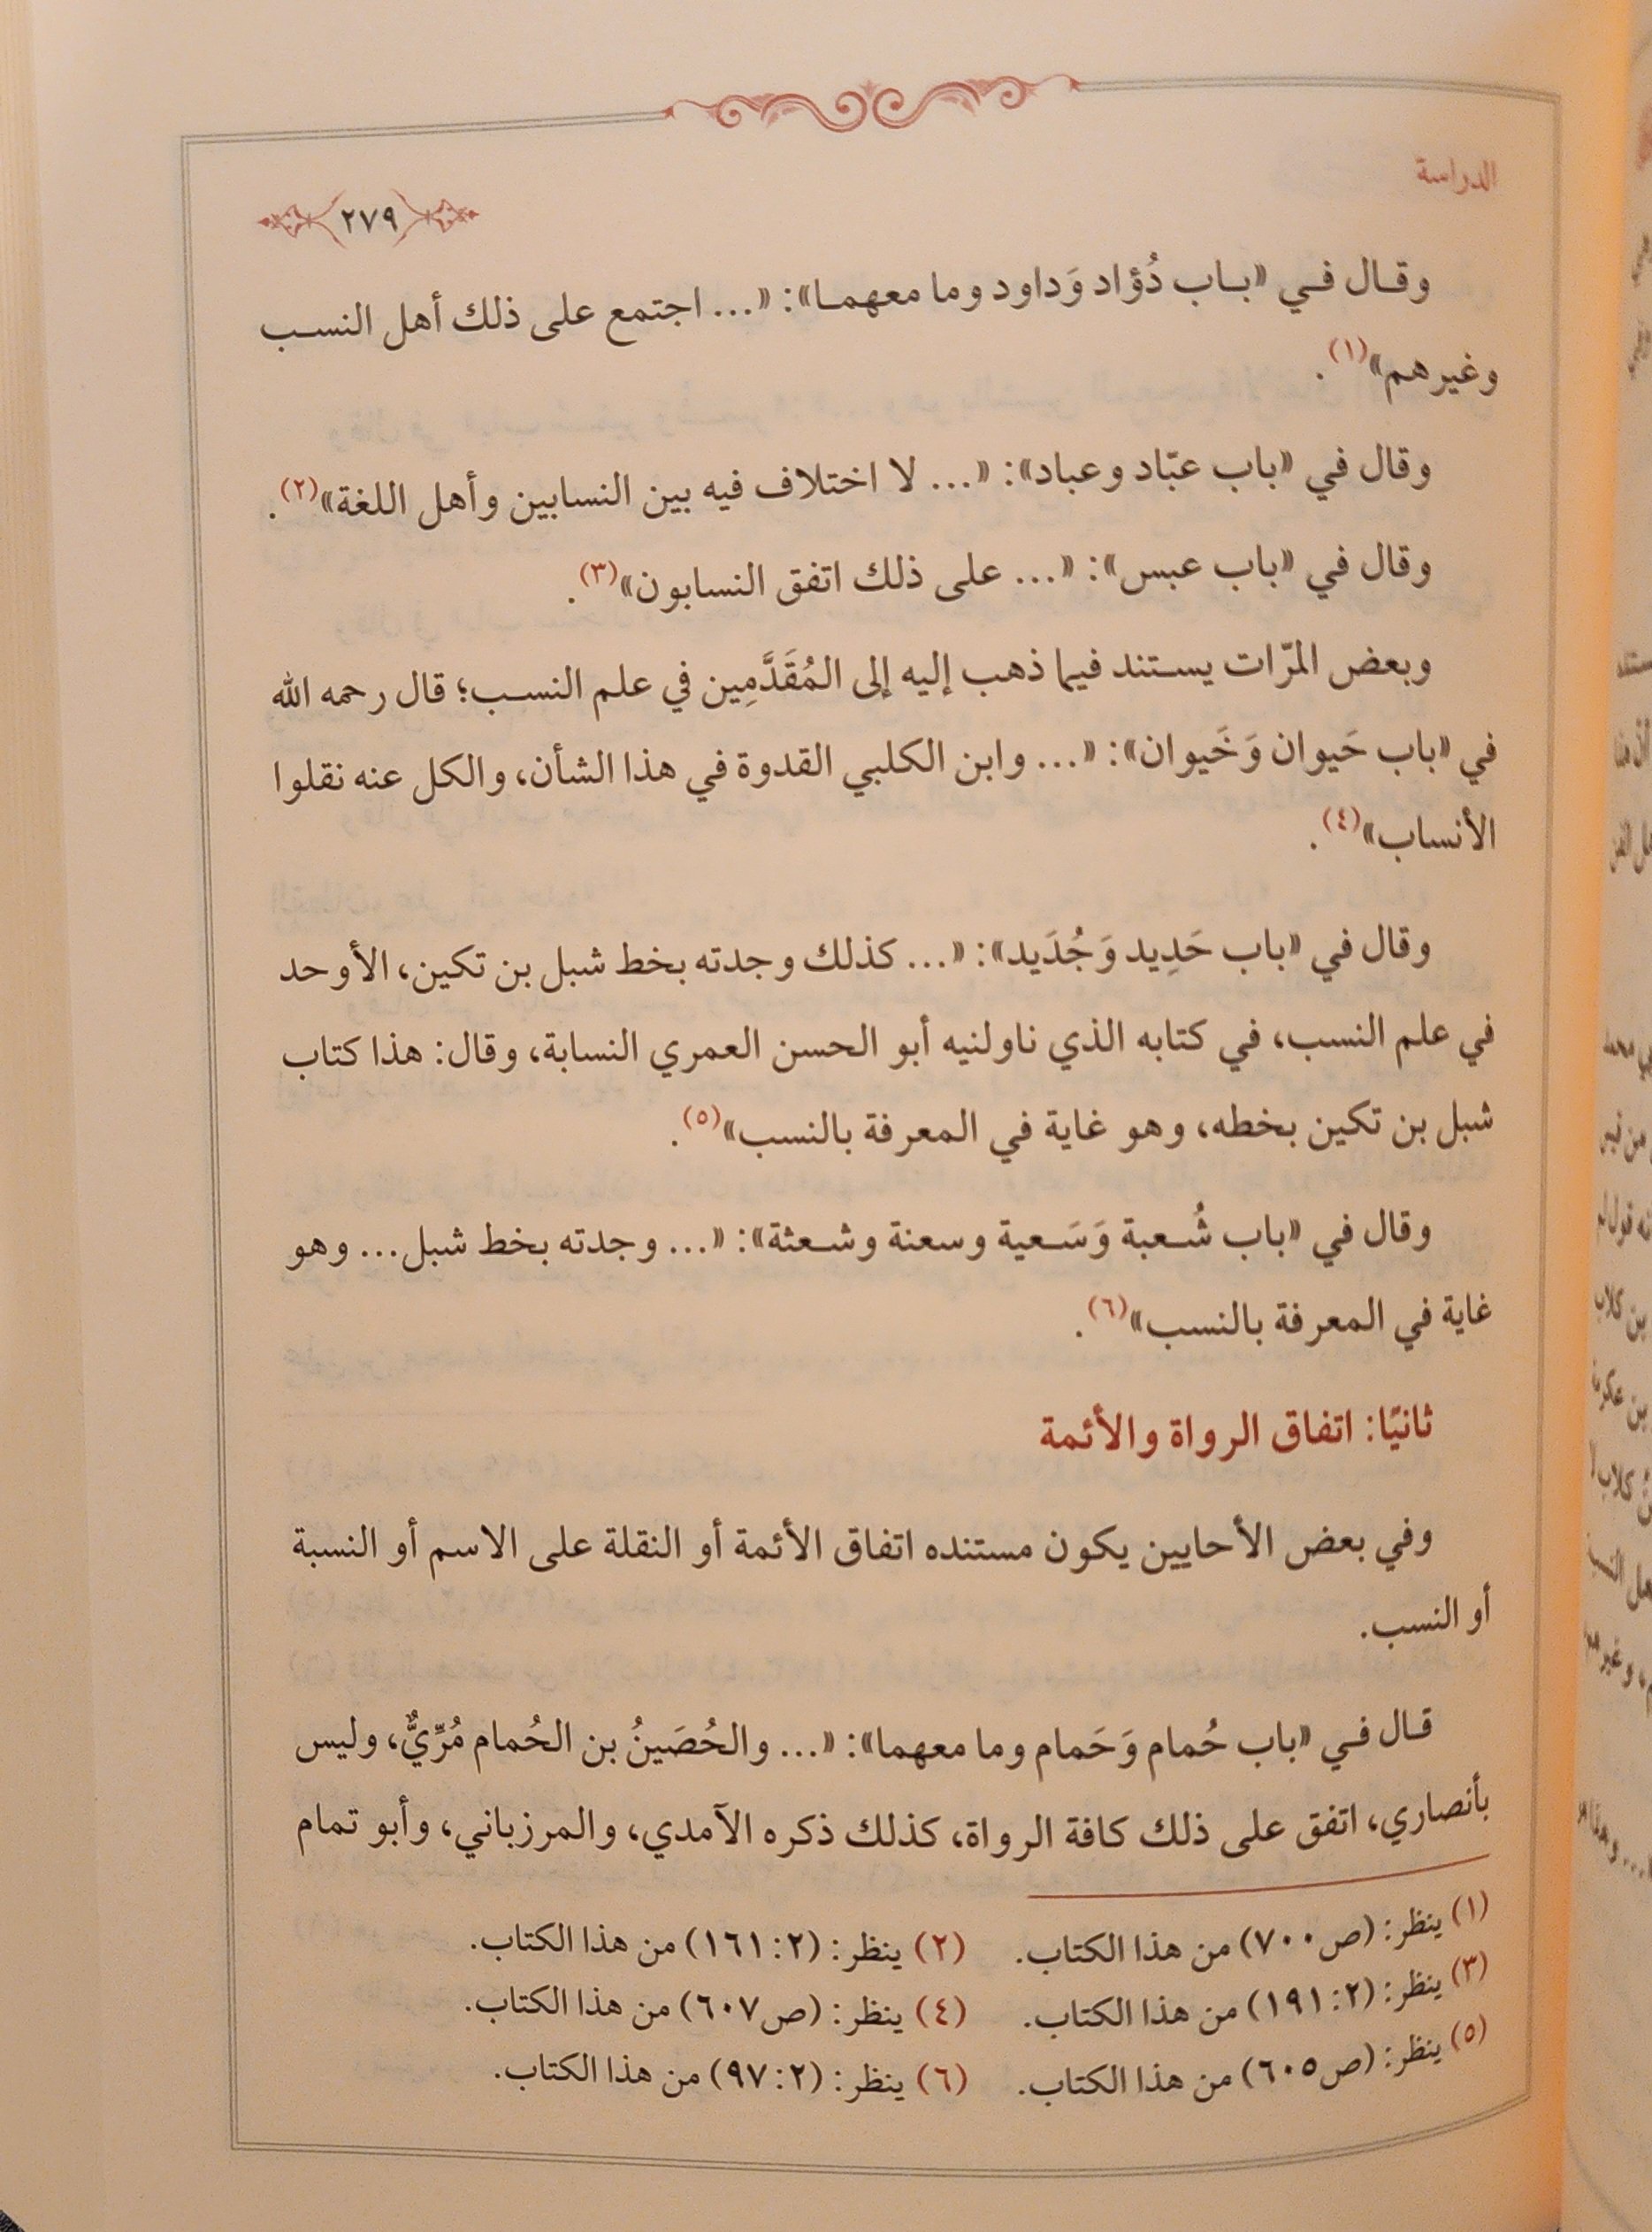 الدراسة
٢٧٩
وقال في «باب دُؤاد وَداود وما معهما»: «... اجتمع على ذلك أهل النسب
وغيرهم»(١).
وقال في «باب عبّاد وعباد»: «... لا اختلاف فيه بين النسابين وأهل اللغة»(٢).
وقال في «باب عبس»: «... على ذلك اتفق النسابون»(٣).
وبعض المرّات يستند فيما ذهب إليه إلى المُقَدَّمِين في علم النسب؛ قال رحمه الله
في «باب حَيوان وَخَيوان»: «... وابن الكلبي القدوة في هذا الشأن، والكل عنه نقلوا
الأنساب»(٤).
وقال في «باب حَدِيد وَجُدَيد»: «... كذلك وجدته بخط شبل بن تكين، الأوحد
في علم النسب، في كتابه الذي ناولنيه أبو الحسن العمري النسابة، وقال: هذا كتاب
شبل بن تكين بخطه، وهو غاية في المعرفة بالنسب»(٥).
وقال في «باب شُعبة وَسَعية وسعنة وشعثة»: «... وجدته بخط شبل... وهو
غاية في المعرفة بالنسب»(٦).
ثانيًا: اتفاق الرواة والأئمة
وفي بعض الأحايين يكون مستنده اتفاق الأئمة أو النقلة على الاسم أو النسبة
أو النسب.
قال في «باب حُمام وَحَمام وما معهما»: «... والحُصَينُ بن الحُمام مُرِّيٌّ، وليس
بأنصاري، اتفق على ذلك كافة الرواة، كذلك ذكره الآمدي، والمرزباني، وأبو تمام
(١) ينظر: (ص٧٠٠) من هذا الكتاب. (٢) ينظر: (٢:١٦١) من هذا الكتاب.
(٣) ينظر: (٢:١٩١) من هذا الكتاب. (٤) ينظر: (ص٦٠٧) من هذا الكتاب.
(٥) ينظر: (ص٦٠٥) من هذا الكتاب. (٦) ينظر: (٢:٩٧) من هذا الكتاب.